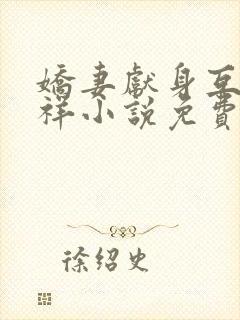 嬌妻獻身互
祥小說免費
徐紹史